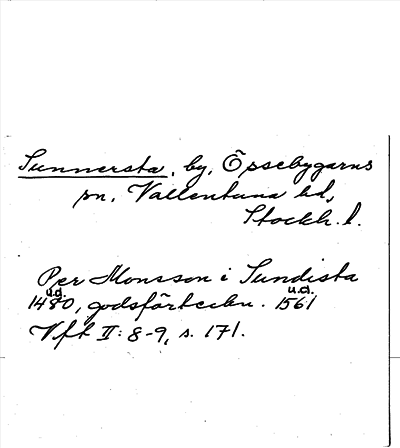 Sunnersta, by, Össebygarns
sn, Vallentuna hd,
Stockh. l.
Per Monsson i Sundista
u.d. u.d.
1480, godsförteckn. 1561
Vft II: 8-9, s. 171.